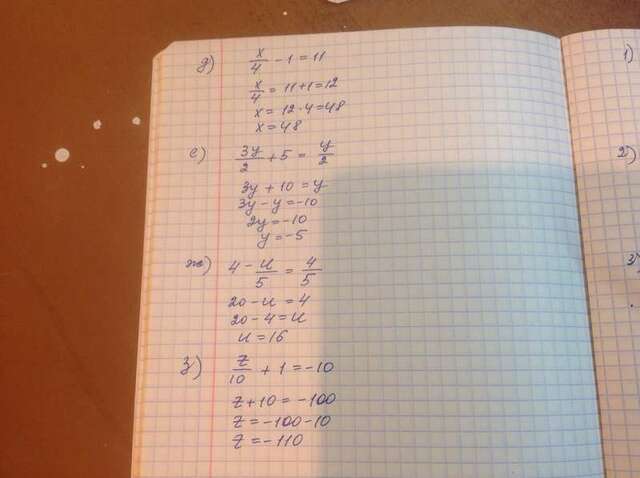 д) x/4 - 1 = 11
x/4 = 11+1 = 12
x = 12·4 = 48
x = 48
е) 3y/2 + 5 = y/2
3y + 10 = y
3y - y = -10
2y = -10
y = -5
ж) 4 - u/5 = 4/5
20 - u = 4
20 - 4 = u
u = 16
з) z/10 + 1 = -10
z + 10 = -100
z = -100 - 10
z = -110
1)
2)
3)